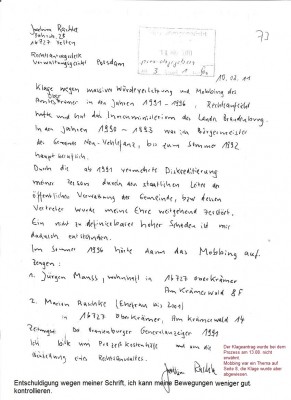 73
Joachim
16727 Velten
Verwaltungsgericht Potsdam
10.02.11
Klage wegen massive Würdeverletzung und Mobbing des
in den Jahren 1991 - 1996, Rechtsaufsicht
hatte und hat das Innenministerium des Landes Brandenburg.
In den Jahren 1990 - 1993 war ich Bürgermeister
der Gemeinde Neu-Vehlefanz, bis zum Sommer 1992
hauptberuflich.
Durch die ab 1991 vermehrte Diskreditierung
meiner Person durch den staatlichen
öffentlichen Verwaltung der Gemeinde, bzw dessen
Vertreter wurde meine Ehre weitgehend zerstört.
Ein nicht zu definierbarer hoher Schaden ist mir
dadurch entstanden.
Im Sommer 1996 hörte dann das Mobbing auf.
Zeugen:
1. Jürgen Manss, wohnhaft in 16727 Oberkrämer
Am Krämerwald 8F
2. Marion (Ehefrau bis
in 16727 Oberkrämer, Am Krämerwald 14
Zeitungen der Oranienburger Generalanzeiger 1991
Ich bitte um Prozeßkostenhilfe und um die
eines Rechtsanwaltes.
Joachim
Der Klageantrag wurde bei dem
Prozess am 13.
erwähnt.
Mobbing war ein Thema auf
Seite die Klage wurde aber
abgewiesen.
Entschuldigung wegen meiner Schrift, ich kann meine Bewegungen weniger gut
kontrollieren.